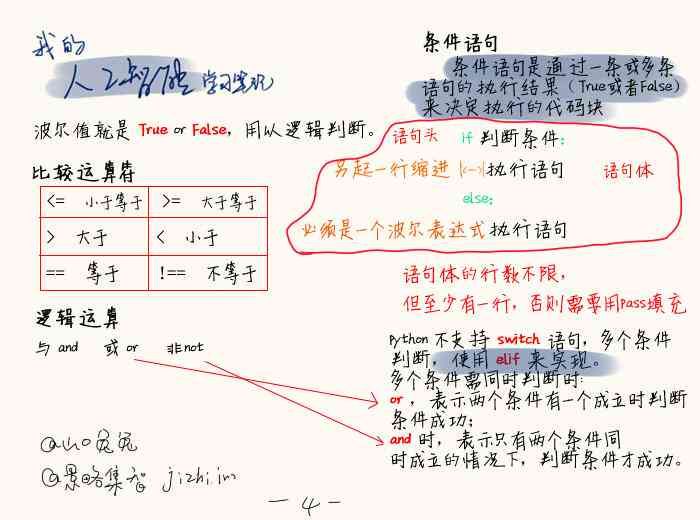 我的
人工智能学习笔记
波尔值就是 True or False，用以逻辑判断。
比较运算符
<= 小于等于 >= 大于等于
> 大于 < 小于
== 等于 !== 不等于
逻辑运算
与 and 或 or 非not
条件语句
条件语句是通过一条或多条
语句的执行结果（True或者False）
来决定执行的代码块
语句头 if 判断条件：
另起一行缩进 |<->|执行语句 语句体
else：
必须是一个波尔表达式 执行语句
语句体的行数不限，
但至少有一行，否则需要用pass填充
Python 不支持 switch 语句，多个条件
判断，使用 elif 来实现。
多个条件需同时判断时：
or ，表示两个条件有一个成立时判断
条件成功；
and 时，表示只有两个条件同
时成立的情况下，判断条件才成功。
@景略集智 jizhi.im
- 4 -